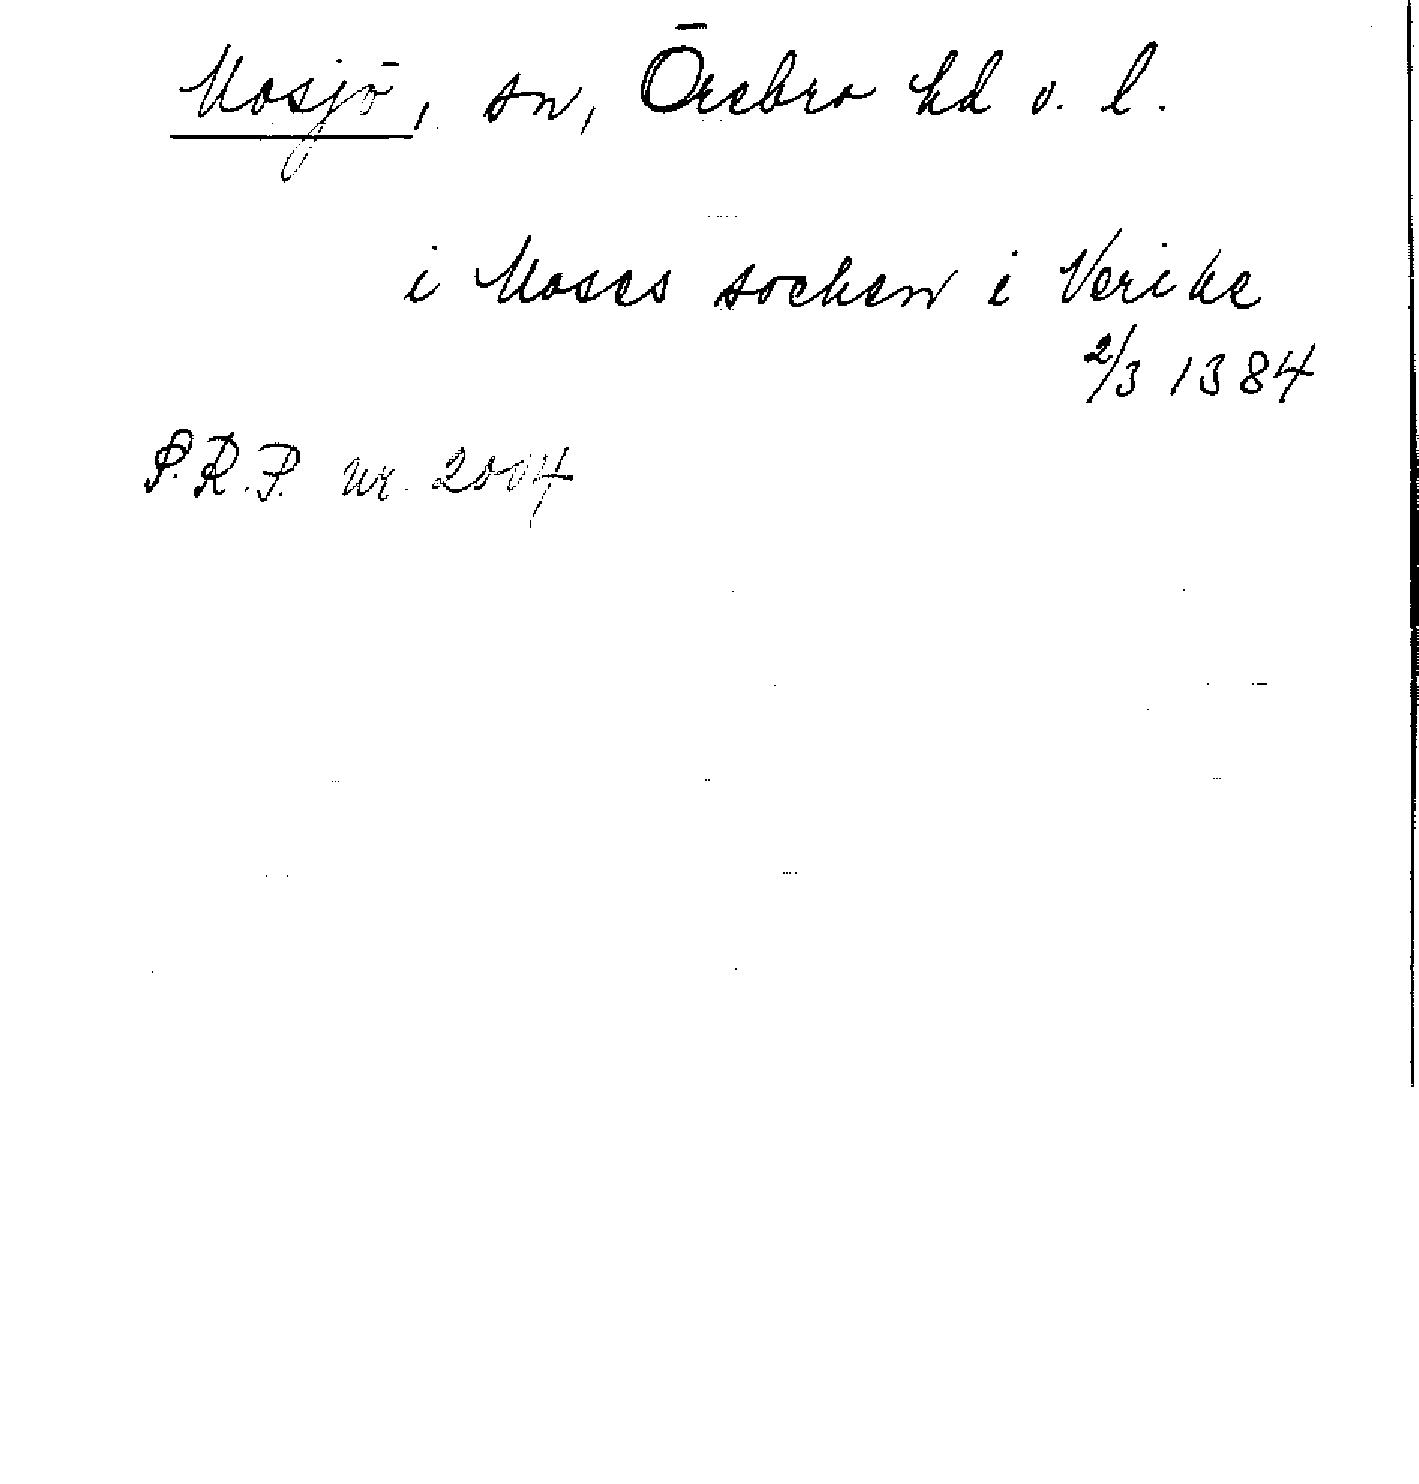 Mosjö, sn, Örebro hd o. l.
i Moses socken i Nerike
2/3 1384
S.R.P. nr. 2004